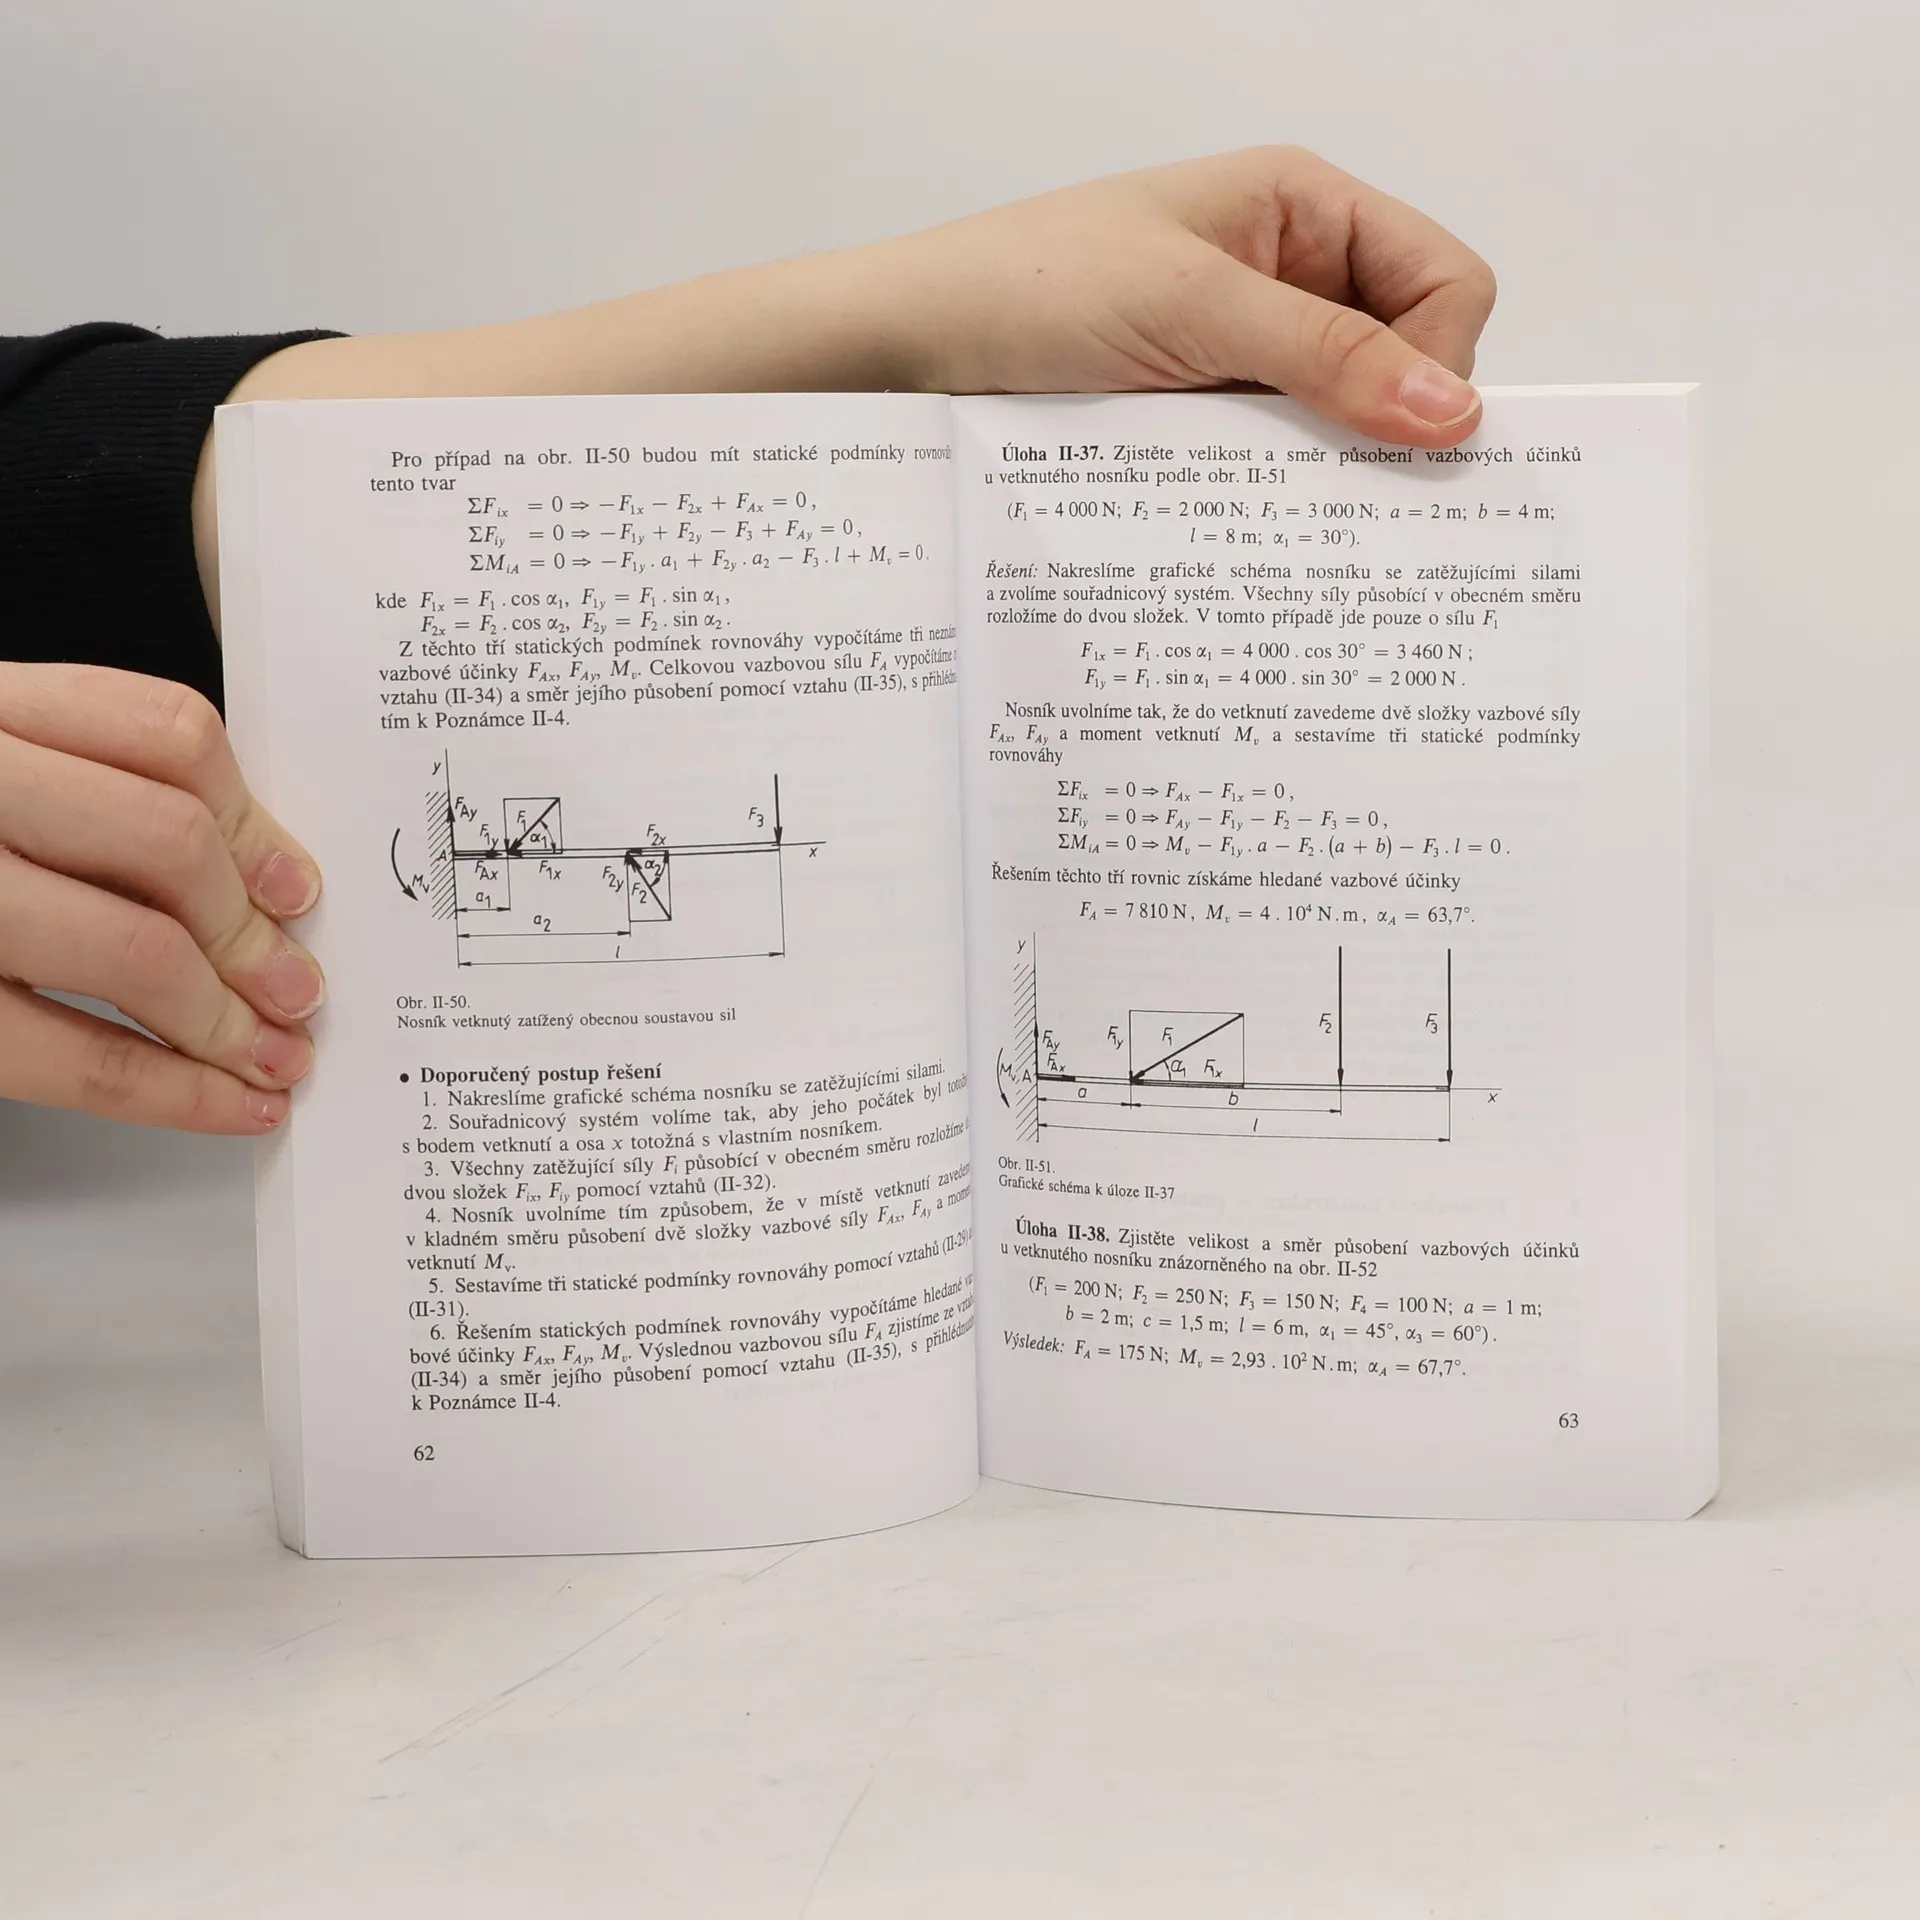 Pro případ na obr. II-50 budou mít statické podmínky
tento tvar
ΣF_ix = 0 ⇒ −F_1x − F_2x + F_Ax = 0,
ΣF_iy = 0 ⇒ −F_1y + F_2y − F_3 + F_Ay = 0,
ΣM_iA = 0 ⇒ −F_1y . a_1 + F_2y . a_2 − F_3 . l + M_v = 0.
kde F_1x = F_1 . cos α_1, F_1y = F_1 . sin α_1,
F_2x = F_2 . cos α_2, F_2y = F_2 . sin α_2.
Z těchto tří statických podmínek rovnováhy vypočítáme tři
vazbové účinky F_Ax, F_Ay, M_v. Celkovou vazbovou sílu F_A vypočítáme
vztahu (II-34) a směr jejího působení pomocí vztahu (II-35), s
tím k Poznámce II-4.
y
F_Ay
F_1y
F_1
α_1
F_2x
F_3
x
A
F_Ax
F_1x
F_2y
α_2
F_2
M_v
a_1
a_2
l
Obr. II-50.
Nosník vetknutý zatížený obecnou soustavou sil
• Doporučený postup řešení
1. Nakreslíme grafické schéma nosníku se zatěžujícími silami.
2. Souřadnicový systém volíme tak, aby jeho počátek byl
s bodem vetknutí a osa x totožná s vlastním nosníkem.
3. Všechny zatěžující síly F_i působící v obecném směru rozložíme
dvou složek F_ix, F_iy pomocí vztahů (II-32).
4. Nosník uvolníme tím způsobem, že v místě vetknutí
v kladném směru působení dvě složky vazbové síly F_Ax, F_Ay a
vetknutí M_v.
5. Sestavíme tři statické podmínky rovnováhy pomocí vztahů (II-29)
(II-31).
6. Řešením statických podmínek rovnováhy vypočítáme hledané
bové účinky F_Ax, F_Ay, M_v. Výslednou vazbovou sílu F_A zjistíme ze
(II-34) a směr jejího působení pomocí vztahu (II-35), s
k Poznámce II-4.
62
Úloha II-37. Zjistěte velikost a směr působení vazbových účinků
u vetknutého nosníku podle obr. II-51
(F_1 = 4 000 N; F_2 = 2 000 N; F_3 = 3 000 N; a = 2 m; b = 4 m;
l = 8 m; α_1 = 30°).
Řešení: Nakreslíme grafické schéma nosníku se zatěžujícími silami
a zvolíme souřadnicový systém. Všechny síly působící v obecném směru
rozložíme do dvou složek. V tomto případě jde pouze o sílu F_1
F_1x = F_1 . cos α_1 = 4 000 . cos 30° = 3 460 N ;
F_1y = F_1 . sin α_1 = 4 000 . sin 30° = 2 000 N .
Nosník uvolníme tak, že do vetknutí zavedeme dvě složky vazbové síly
F_Ax, F_Ay a moment vetknutí M_v a sestavíme tři statické podmínky
rovnováhy
ΣF_ix = 0 ⇒ F_Ax − F_1x = 0,
ΣF_iy = 0 ⇒ F_Ay − F_1y − F_2 − F_3 = 0,
ΣM_iA = 0 ⇒ M_v − F_1y . a − F_2 . (a + b) − F_3 . l = 0 .
Řešením těchto tří rovnic získáme hledané vazbové účinky
F_A = 7 810 N, M_v = 4 . 10⁴ N.m, α_A = 63,7°.
y
F_Ay
F_Ax
F_1y
F_1
α_1
F_1x
F_2
F_3
M_v
A
a
b
x
l
Obr. II-51.
Grafické schéma k úloze II-37
Úloha II-38. Zjistěte velikost a směr působení vazbových účinků
u vetknutého nosníku znázorněného na obr. II-52
(F_1 = 200 N; F_2 = 250 N; F_3 = 150 N; F_4 = 100 N; a = 1 m;
b = 2 m; c = 1,5 m; l = 6 m, α_1 = 45°, α_3 = 60°).
Výsledek: F_A = 175 N; M_v = 2,93 . 10² N.m; α_A = 67,7°.
63